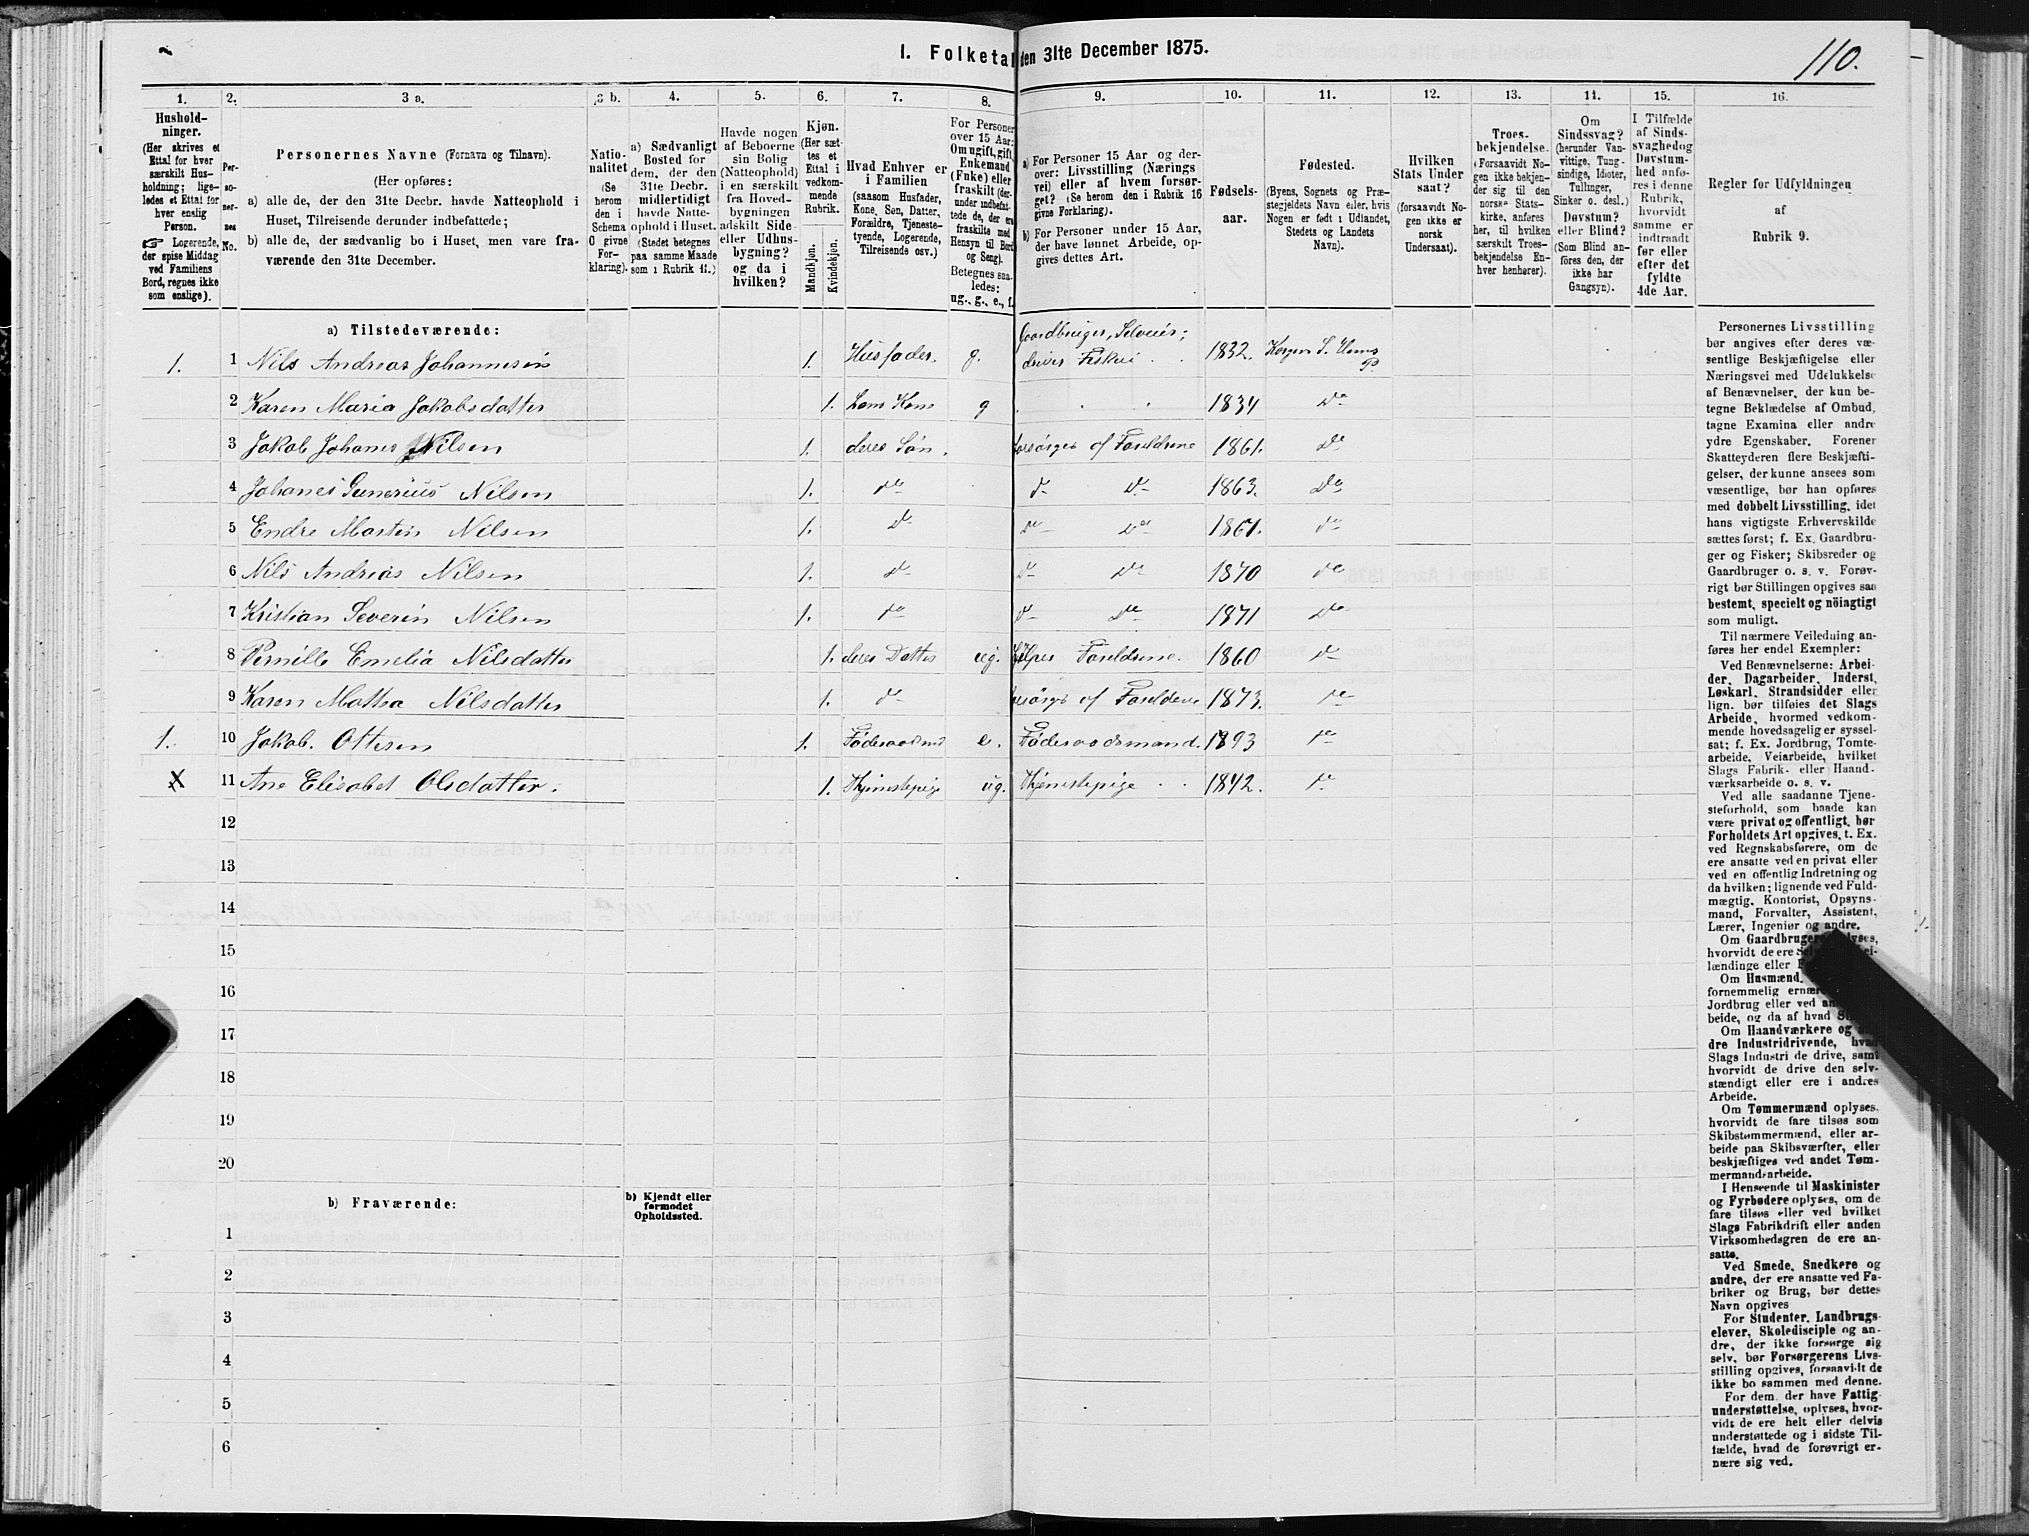 I. Folketal den 31te December 1875.
110.
1.
Hushold-
ninger.
(Her skrives et
Ettal for hver
særskilt Hus-
holdning; lige-
ledes et Ettal for
hver enslig
Person.
☞ Logerende,
der spise Middag
ved Familiens
Bord, regnes ikke
som enslige).
2.
Per-
so-
ner-
nes
No.
3 a.
Personernes Navne (Fornavn og Tilnavn).
(Her opføres:
a) alle de, der den 31te Decbr. havde Natteophold i
Huset, Tilreisende derunder indbefattede;
b) alle de, der sædvanlig bo i Huset, men vare fra-
værende den 31te December.
3 b.
Natio-
nalitet
(Se
herom
den i
Schema
C givne
For-
klaring).
4.
a) Sædvanligt
Bosted for
dem, der den
31te Decbr.
midlertidigt
havde Natte-
ophold i Huset.
(Stedet betegnes
paa samme Maade
som i Rubrik 11.)
5.
Havde nogen
af Beboerne
sin Bolig
(Natteophold)
i en særskilt
fra Hoved-
bygningen
adskilt Side-
eller Udhus-
bygning?
og da i
hvilken?
6.
Kjøn.
(Her sæt-
tes et
Ettal i
vedkom-
mende
Rubrik.
Mandkjøn.
Kvindekjøn.
7.
Hvad Enhver er
i Familien
(saasom Husfader,
Kone, Søn, Datter,
Forældre, Tjeneste-
tyende, Logerende,
Tilreisende osv.)
8.
For Personer
over 15 Aar:
Om ugift, gift,
Enkemand
(Enke) eller
fraskilt (der-
under indbefat-
tede de, der ere
fraskilte med
Hensyn til Bord
og Seng).
Betegnes saa-
ledes:
ug., g., e., f.
9.
a) For Personer 15 Aar og der-
over: Livsstilling (Nærings
vei) eller af hvem forsør-
get? (Se herom den i Rubrik 16
givne Forklaring).
b) For Personer under 15 Aar,
der have lønnet Arbeide, op-
gives dettes Art.
10.
Fødsels-
aar.
11.
Fødested.
(Byens, Sognets og Præ-
stegjeldets Navn eller, hvis
Nogen er født i Udlandet,
Stedets og Landets
Navn).
12.
Hvilken
Stats Under
saat?
(forsaavidt No-
gen ikke er
norsk
Undersaat).
13.
Troes-
bekjendelse.
(Forsaavidt No-
gen ikke bekjen-
der sig til den
norske Stats-
kirke, anføres
her, til hvilken
særskilt Troes-
bekjendelse En-
hver henhører).
14.
Om
Sindssvag?
(herunder Van-
vittige, Tung-
sindige, Idioter,
Tullinger,
Sinker o. desl.)
Døvstum?
eller Blind?
(Som Blind an-
føres den, der
ikke har
Gangsyn).
15.
I Tilfælde
af Sinds-
svaghed og
Døvstum-
hed anfø-
res i denne
Rubrik,
hvorvidt
samme er
indtraadt
før eller
efter det
fyldte
4de Aar.
16.
Regler for Udfyldningen
af
Rubrik 9.
a) Tilstedeværende:
1. 1 Nils Andreas Johannesen 1. Husfader. g. Gaardbruger, Selveier; driver Fiskeri 1832. Korgen S. Hemnæs P.
2 Karen Maria Jakobsdatter 1. hans Kone g 1834 Do
3 Jakob Johanes Nilsen 1. deres Søn. forsørges af Forældrene 1861. do
4 Johanes Gunerius Nilsen 1. do do Do 1863. Do
5 Endre Martin Nilsen 1. do do Do 1867. do
6 Nils Andreas Nilsen 1. do do Do 1870 do
7 Kristian Severin Nilsen 1. do do Do 1871 Do
8 Pernille Emelia Nilsdatter 1. deres Datter ug. hjelper Forældrene. 1860 do
9 Karen Mathea Nilsdatter 1. do forsørges af Forældrene 1873. do
1. 10 Jakob. Ottesen 1. Føderaadsmd e. Føderaadsmand. 1893 do
X 11 Ane Elisabet Olsdatter. 1. Thjenestepige ug. Thjenestepige 1842. do
12
13
14
15
16
17
18
19
20
b) Fraværende:
b) Kjendt eller
formodet
Opholdssted.
1
2
3
4
5
6
Personernes Livsstilling
bør angives efter deres væ-
sentlige Beskjæftigelse eller
Næringsvei med Udelukkelse
af Benævnelser, der kun be-
tegne Beklædelse af Ombud,
tagne Examina eller andre
ydre Egenskaber. Forener
Skatteyderen flere Beskjæfti-
gelser, der kunne ansees som
væsentlige, bør han opføres
med dobbelt Livsstilling, idet
hans vigtigste Erhvervskilde
sættes først; f. Ex. Gaardbru-
ger og Fisker; Skibsreder og
Gaardbruger o. s. v. Forøv-
rigt bør Stillingen opgives saa
bestemt, specielt og nöiagtigt
som muligt.
Til nærmere Veiledning an-
føres her endel Exempler:
Ved Benævnelserne: Arbei-
der, Dagarbeider, Inderst,
Løskarl, Strandsidder eller
lign. bør tilføies det Slags
Arbeide, hvormed vedkom-
mende hovedsagelig er syssel-
sat; f. Ex. Jordbrug, Tomte-
arbeide, Veiarbeide, hvilket
Slags Fabrik- eller Haand-
værksarbeide o. s. v.
Ved alle saadanne Tjene-
steforhold, som baade kan
være privat og offentligt, bør
Forholdets Art opgives, t. Ex.
ved Regnskabsførere, om de
ere ansatte ved en privat eller
ved en offentlig Indretning og
da hvilken; lignende ved Fuld-
mægtig, Kontorist, Opsyns-
mand, Forvalter, Assistent,
Lærer, Ingeniør og andre.
Om Gaardbrugere oplyses,
hvorvidt de ere
lændinge eller
Om Husmænd,
fornemmelig ernære
Jordbrug eller ved
beide, og da af hvad
Om Haandværkere og
dre Industridrivende, hvad
Slags Industri de drive, samt
hvorvidt de drive den selv-
stændigt eller ere i andres
Arbeide.
Om Tømmermænd oplyses,
hvorvidt de fare tilsøs som
Skibstømmermænd, eller ar-
beide paa Skibsværfter, eller
beskjæftiges ved andet Tøm-
mermandsarbeide.
I Henseende til Maskinister
og Fyrbødere oplyses, om de
fare tilsøs eller ved hvilket
Slags Fabrikdrift eller anden
Virksomhedsgren de ere an-
satte.
Ved Smede, Snedkere og
andre, der ere ansatte ved Fa-
briker og Brug, bør dettes
Navn opgives
For Studenter, Landbrugs-
elever, Skoledisciple og an-
dre, der ikke forsørge sig
selv, bør Forsørgerens Livs-
stilling opgives, forsaavidt de
ikke bo sammen med denne.
For dem, der have Fattig-
understøttelse, oplyses, hvor-
vidt de ere helt eller delvis
understøttede og i sidste Til-
fælde, hvad de forøvrigt er-
nære sig ved.